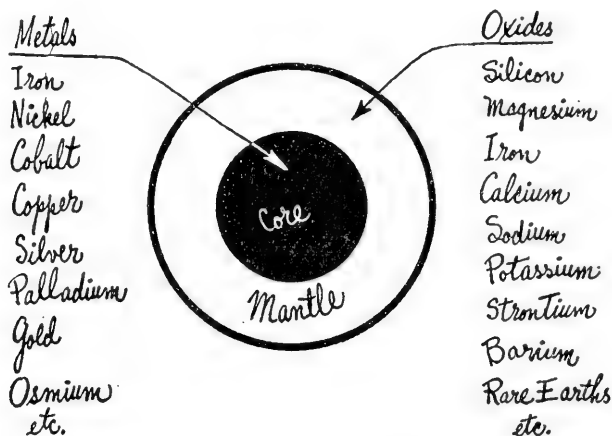 Metals
Iron
Nickel
Cobalt
Copper
Silver
Palladium
Gold
Osmium
etc.
Core
Mantle
Oxides
Silicon
Magnesium
Iron
Calcium
Sodium
Potassium
Strontium
Barium
Rare Earths
etc.